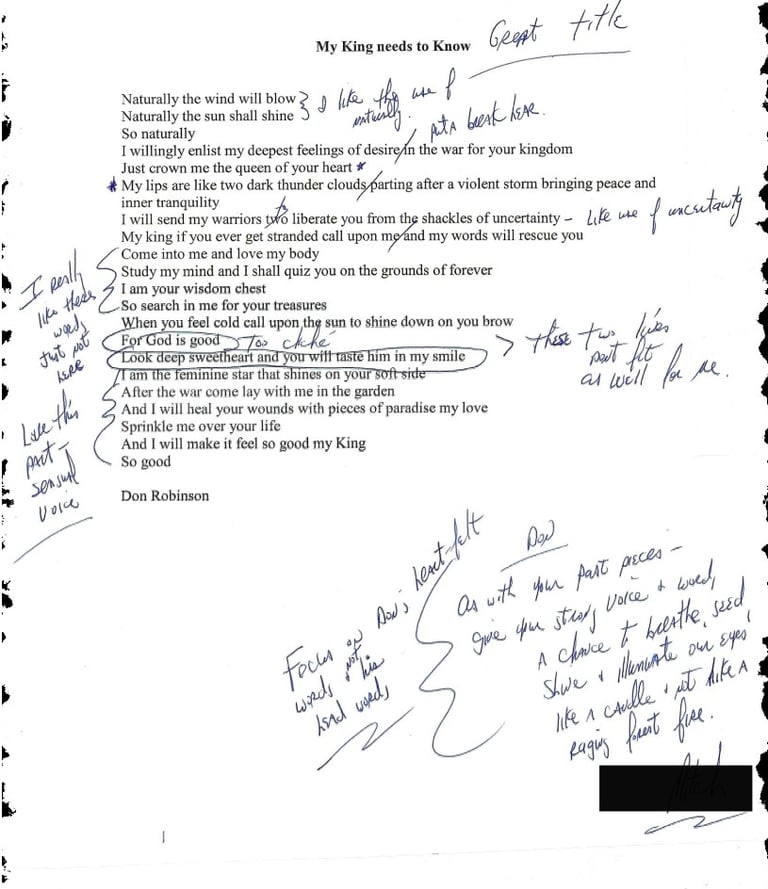 My King needs to Know
Great title
Naturally the wind will blow
Naturally the sun shall shine
I like the use of
naturally.
So naturally
put A break here.
I willingly enlist my deepest feelings of desire/in the war for your kingdom
Just crown me the queen of your heart *
* My lips are like two dark thunder clouds/parting after a violent storm bringing peace and
inner tranquility
to
I will send my warriors two liberate you from the shackles of uncertainty – like use of uncertainty
My king if you ever get stranded call upon me/and my words will rescue you
Come into me and love my body
Study my mind and I shall quiz you on the grounds of forever
I am your wisdom chest
So search in me for your treasures
I really
like these
words
Just not
here
When you feel cold call upon the sun to shine down on you brow
For God is good
Too cliché
Look deep sweetheart and you will taste him in my smile
these two lines
don't fit
as well for me.
/I am the feminine star that shines on your soft side
After the war come lay with me in the garden
And I will heal your wounds with pieces of paradise my love
Sprinkle me over your life
And I will make it feel so good my King
So good
Like this
part –
sensual
voice
Don Robinson
Focus on Don's heart-felt
words & not his
head words
Don
As with your past pieces –
give your strong voice & word,
A chance to breathe, seed
shine & illuminate our eyes
like A candle & not like A
raging forest fire.